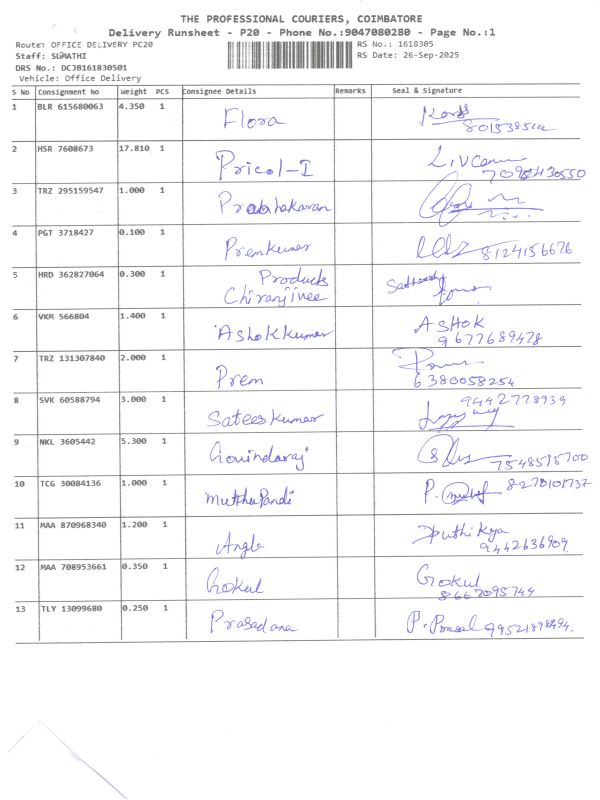 THE PROFESSIONAL COURIERS, COIMBATORE
Delivery Runsheet - P20 - Phone No.:9047080280 - Page No.:1
Route: OFFICE DELIVERY PC20 RS No.: 1618305
Staff: SUMATHI RS Date: 26-Sep-2025
DRS No.: DCJB161830501
Vehicle: Office Delivery
S No Consignment No Weight PCS Consignee Details Remarks Seal & Signature
1 BLR 615680063 4.350 1 Flora
2 HSR 7608673 17.810 1 Pricol-I
3 TRZ 295159547 1.000 1 Prabhakaran
4 PGT 3718427 0.100 1 Premkumar 8124156626
5 HRD 362827064 0.300 1 Products
Chiranjivee
6 VKM 566804 1.400 1 Ashokkumar ASHOK
9677689478
7 TRZ 131307840 2.000 1 Prem
6380058254
8 SVK 60588794 3.000 1 Sateeskumar 9442778939
9 NKL 3605442 5.300 1 Govindaraj 7548515700
10 TCG 30084136 1.000 1 MutthuPandi P. 8270101737
11 MAA 870968340 1.200 1 Angle
9442636909
12 MAA 708953661 0.350 1 Gokul Gokul
8667095744
13 TLY 13099680 0.250 1 Prasadana P. Prasad